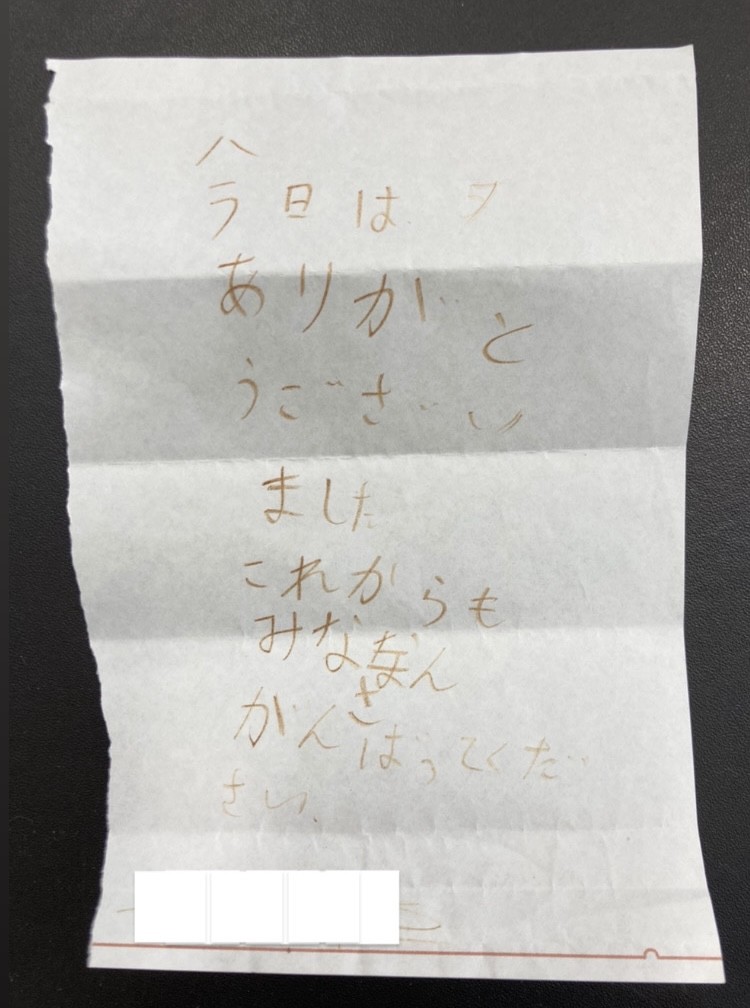 今日は タ
ありがと
うござい
ました
これからも
みなさん
がんばってくだ
さい.